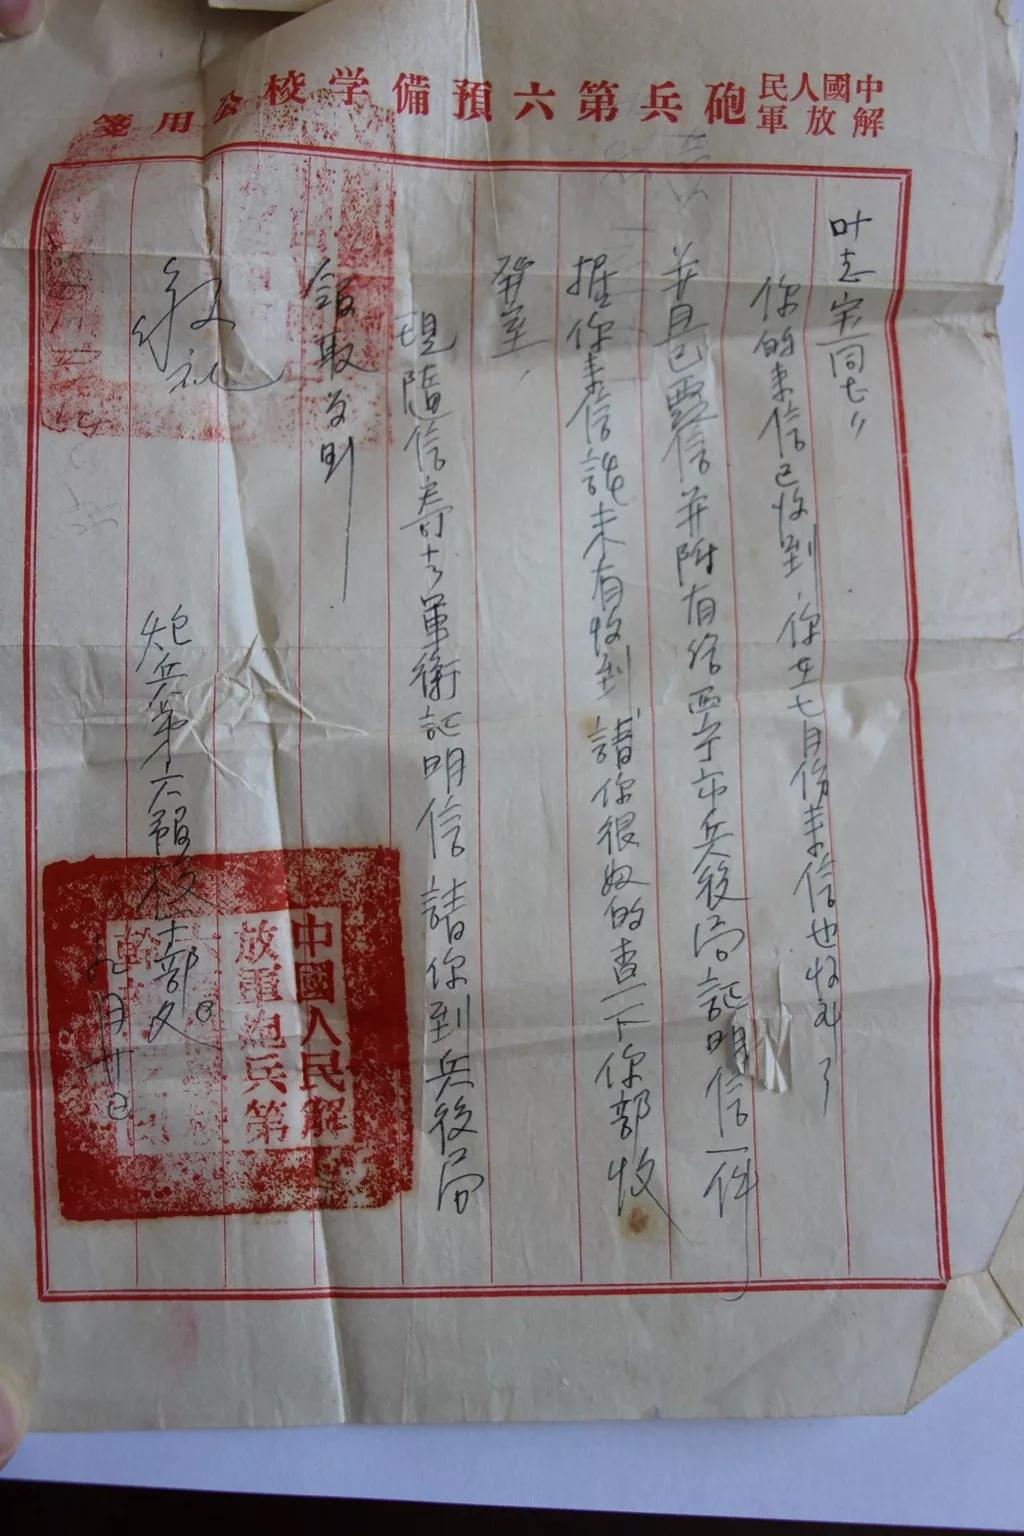 中國人民解放軍砲兵第六預備学校公用箋
叶志宏同志
你的来信已收到，你在七月份来信也收到了
并且已覆信并附有给西宁市兵役局証明信一件
据你来信説未有收到 請你很好的查一下你部收
發室，
現随信寄去軍衔証明信 請你到兵役局
領取为盼
敬礼
炮兵第六預校干部
九月廿日
中國人民解
放軍炮兵第
幹